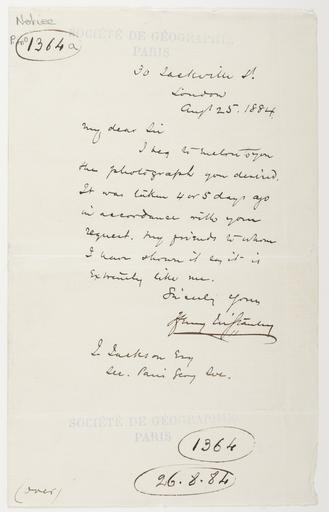 Notice
No 1364a
SOCIÉTÉ DE GÉOGRAPHIE
PARIS
30 Sackville St.
London
Augt 25. 1884
My dear Sir
I beg to enclose you
the photograph you desired.
It was taken 4 or 5 days ago
in accordance with your
request. My friends to whom
I have shown it say it is
extremely like me.
Sincerely Yours
Henry M Stanley
J. Jackson Esq
Sec. Paris Geog Soc.
SOCIÉTÉ DE GÉOGRAPHIE
PARIS
1364
26.8.84
(over)